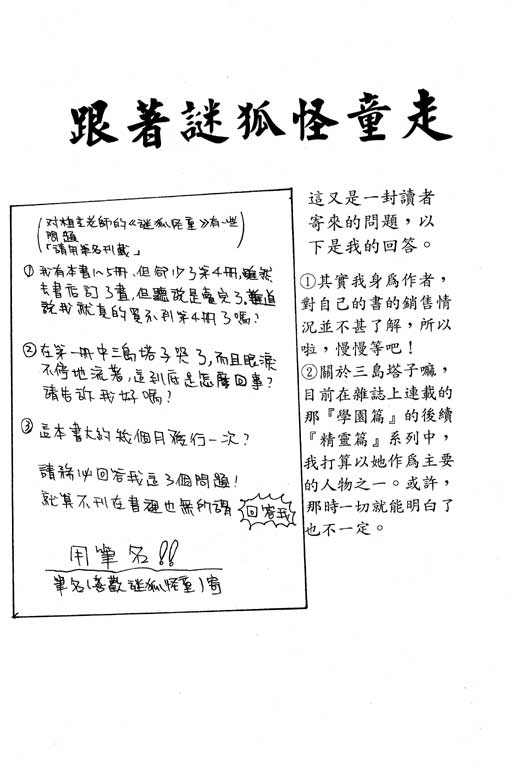 跟著謎狐怪童走
(對桂壹老師的《謎狐怪童》有一些
問題
「請用筆名刊載」
①我有本書1~5冊,但卻少了第4冊,雖然
去書店訂了書,但聽說是賣完了,難道
說我就真的買不到第4冊了嗎?
②在第一冊中三島塔子哭了,而且眼淚
不停地流著,這到底是怎麼回事?
請告訴我好嗎?
③這本書大約幾個月發行一次?
請務必回答我這3個問題!
就算不刊在書裡也無所謂
回答我
用筆名!!
筆名(喜歡謎狐怪童)寄
這又是一封讀者
寄來的問題,以
下是我的回答。
①其實我身為作者,
對自己的書的銷售情
況並不甚了解,所以
啦,慢慢等吧!
②關於三島塔子嘛,
目前在雜誌上連載的
那『學園篇』的後續
『精靈篇』系列中,
我打算以她作為主要
的人物之一。或許,
那時一切就能明白了
也不一定。